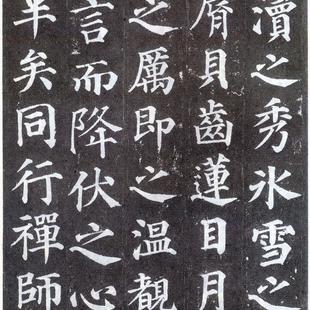 瀆之秀氷雪之
脣貝齒蓮目月
之厲即之温覩
言而降伏之心
半矣同行禪師